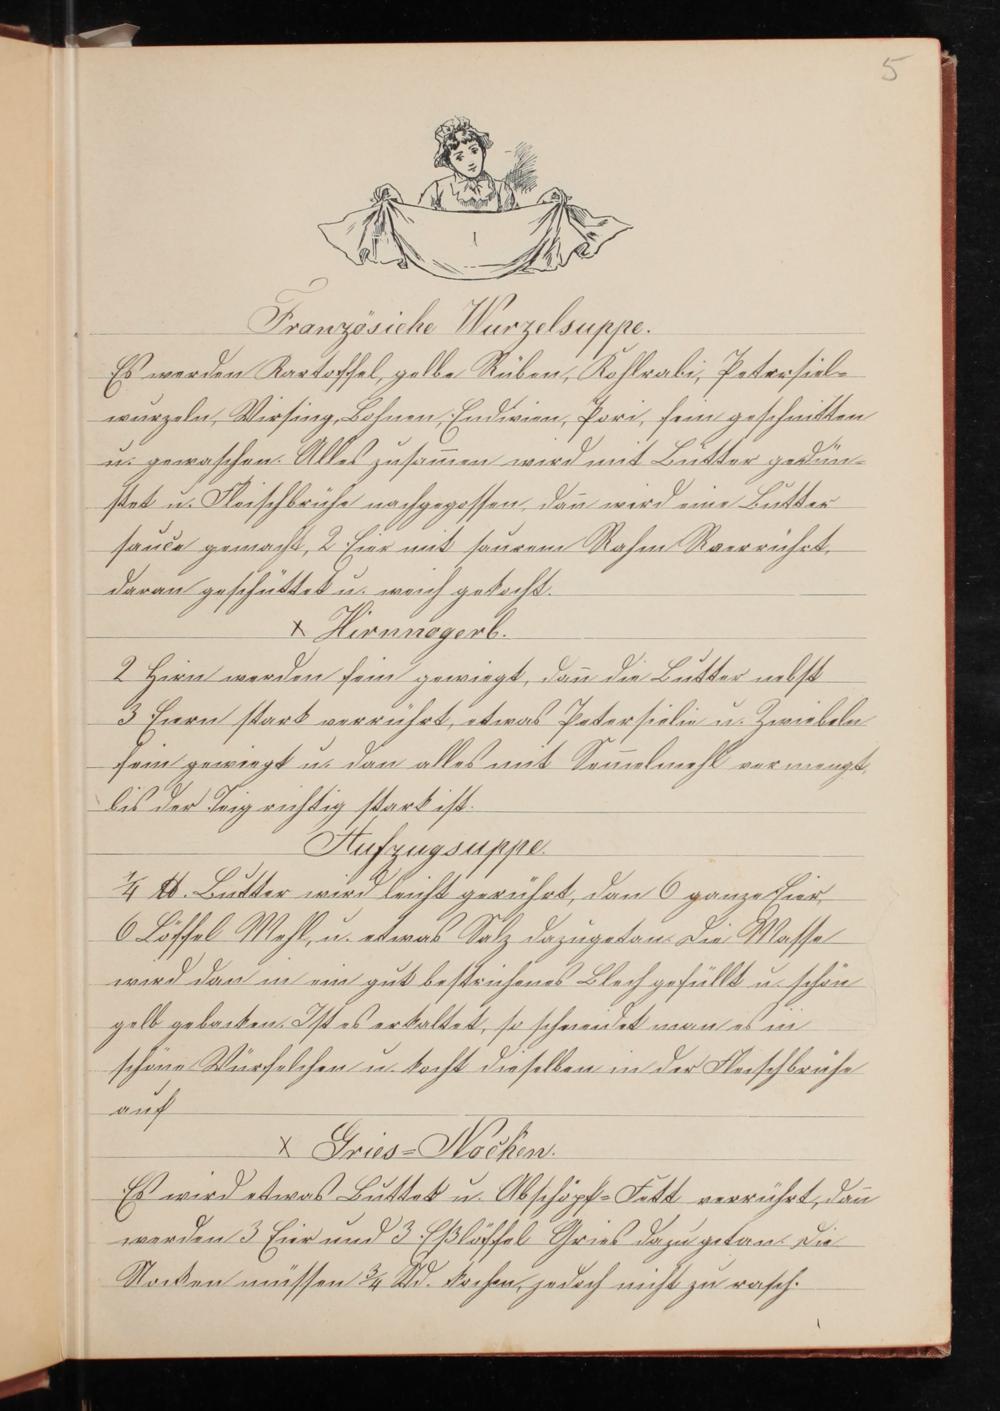 5
1
Französiche Wurzelsuppe.
Es werden Kartoffel, gelbe Rüben, Kohlrabi, Petersiel-
wurzeln, Wirsing, Bohnen, Endivien, Pori, fein geschnitten
u. gewaschen. Alles zusam̄en wird mit Butter gedün-
stet u. Fleischbrühe nachgegossen, dan̄ wird eine Butter
sauce gemacht, 2 Eier mit saurem Rahm verrührt,
daran geschüttet u. weich gekocht.
x Hirnnogerl.
2 Hirn werden fein gewiegt, dan̄ die Butter nebst
3 Eiern stark verrührt, etwas Petersielie u. Zwiebeln
fein gewiegt u. dan alles mit Sem̄elmehl vermengt,
bis der Teig richtig stark ist.
Aufzugsuppe.
1/4 ℔. Butter wird leicht gerührt, dan 6 ganze Eier,
6 Löffel Mehl, u. etwas Salz dazugetan. Die Masse
wird dan in ein gut bestrichenes Blech gefüllt u. schön
gelb gebacken. Ist es erkaltet, so schneidet man es in
schöne Würfelchen u. kocht dieselben in der Fleischbrühe
auf
x Gries=Nocken.
Es wird etwas Butter u. Abschöpf=Fett verrührt, dan̄
werden 3 Eier und 3 Eßlöffel Gries dazu getan. Die
Nocken müssen 3/4 Std. kochen, jedoch nicht zu rasch.